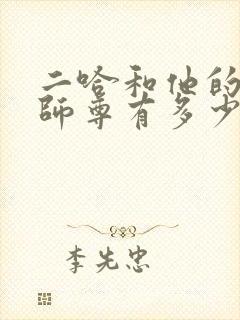 二哈和他的
师尊有多少
李先忠